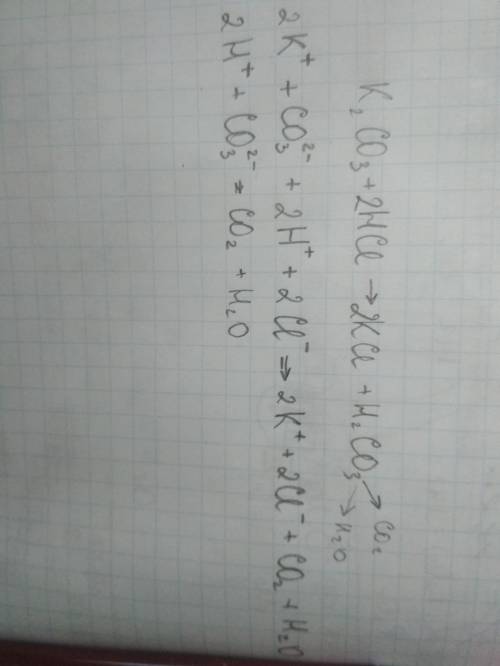 K₂CO₃ + 2HCl → 2KCl + H₂CO₃ ↗ CO₂ ↘ H₂O
2K⁺ + CO₃²⁻ + 2H⁺ + 2Cl⁻ ⇒ 2K⁺ + 2Cl⁻ + CO₂ + H₂O
2H⁺ + CO₃²⁻ = CO₂ + H₂O